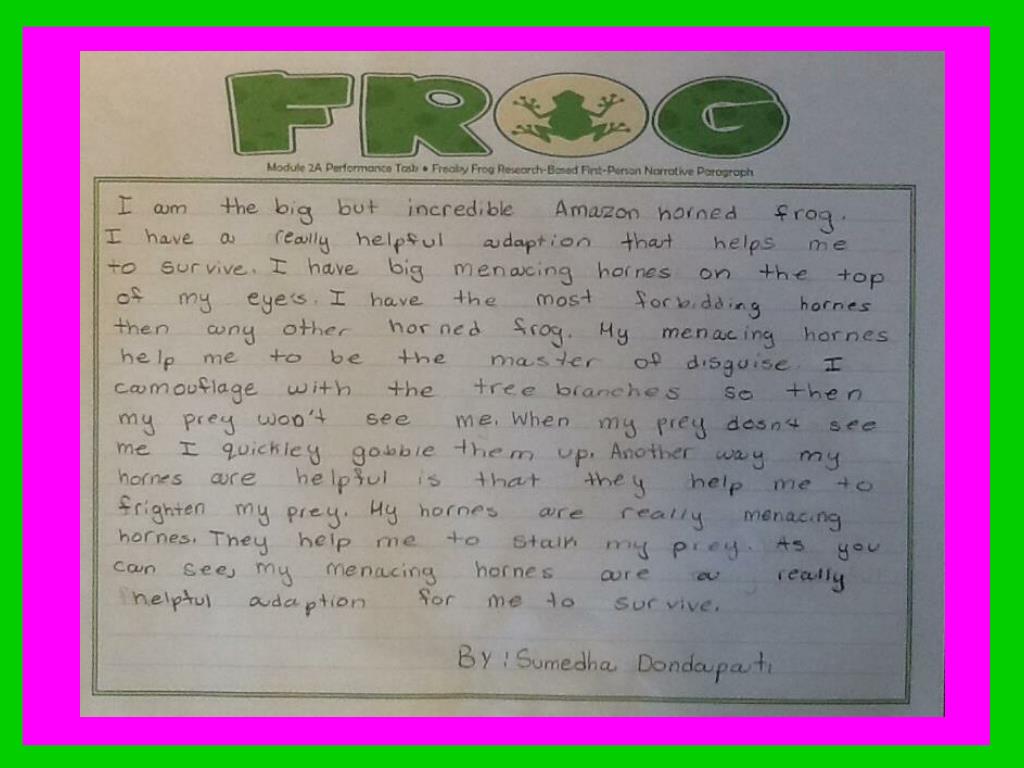 FROG
Module 2A Performance Task • Freaky Frog Research-Based First-Person Narrative Paragraph
I am the big but incredible Amazon horned frog.
I have a really helpful adaption that helps me
to survive. I have big menacing hornes on the top
of my eye's. I have the most forbidding hornes
then any other horned frog. My menacing hornes
help me to be the master of disguise. I
camouflage with the tree branches so then
my prey won't see me. When my prey dosn't see
me I quickley gobble them up. Another way my
hornes are helpful is that they help me to
frighten my prey. My hornes are really menacing
hornes. They help me to stalk my prey. As you
can see, my menacing hornes are a really
helpful adaption for me to survive.
By: Sumedha Dondapati